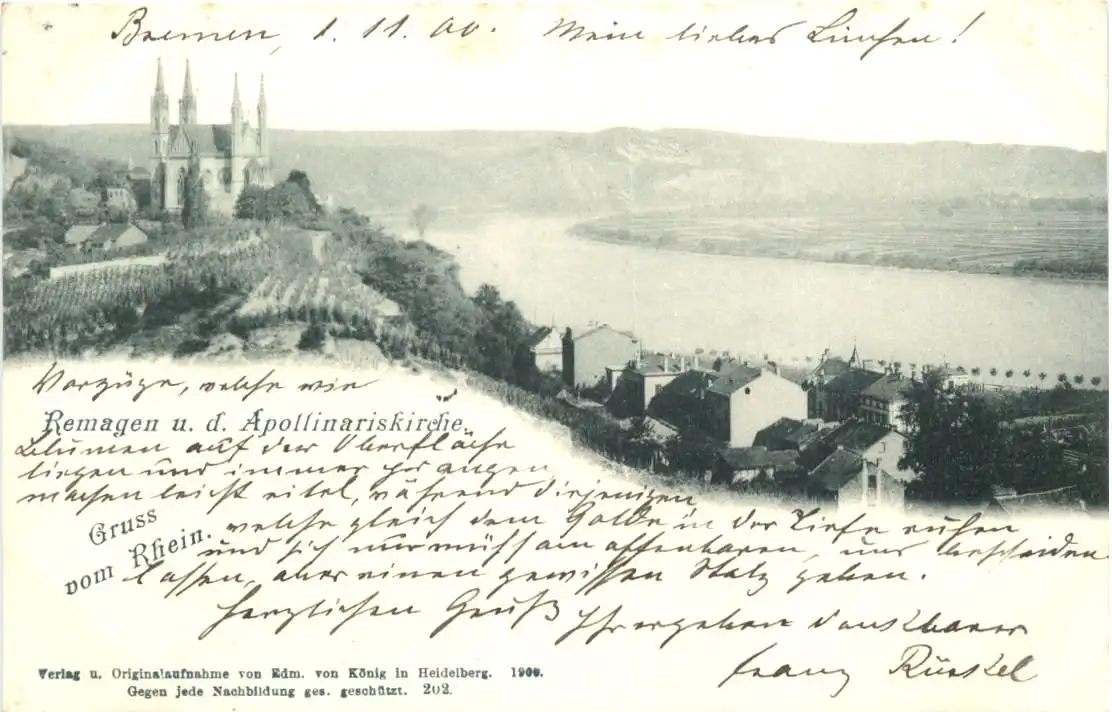 Bremen, 1. 11. 00. Mein liebes Linchen!
Vorzüge, welche wie
Remagen u. d. Apollinariskirche.
Blumen auf der Oberfläche
liegen und immer prangen
machen leicht eitel, während diejenigen
Gruss
welche gleich dem Golde in der Tiefe ruhen
vom Rhein.
und sich nur mühsam offenbaren, uns bescheiden
lassen, aber einen gewissen Stolz geben.
Herzlichen Gruß Ihr ergeben dankbarer
Franz
Verlag u. Originalaufnahme von Edm. von König in Heidelberg. 1900.
Gegen jede Nachbildung ges. geschützt. 202.